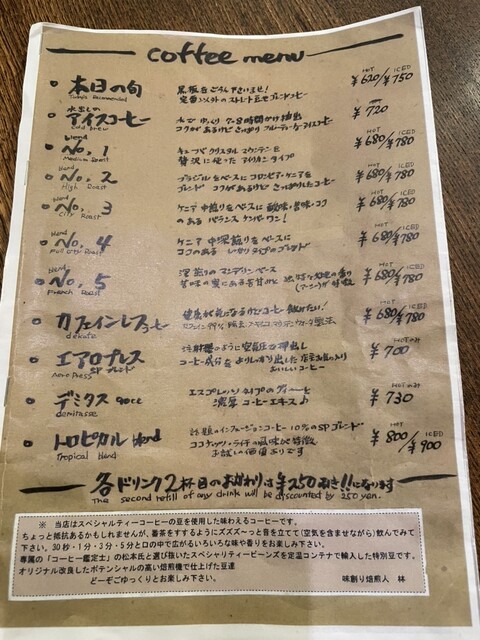 coffee menu
本日の旬
Today's Recommended
黒板をごらん下さいませ!
定番以外のストレート豆でブレンドコーヒー
HOT ICED
¥620/¥750
水出しの
アイスコーヒー
cold brew
水でゆっくり 7~8時間かけ抽出
コクがあるけどさっぱり フルーティーなアイスコーヒー
¥720
blend
No, 1
Medium Roast
キューバ クリスタル マウンテンを
贅沢に使った アメリカンタイプ
HOT ICED
¥680/¥780
blend
No, 2
High Roast
ブラジルをベースに コロンビア・ケニアを
ブレンド コクがあるけど さっぱりしたコーヒー
HOT ICED
¥680/¥780
blend
No, 3
City Roast
ケニア 中煎りをベースに 酸味・苦味・コク
のある バランス ナンバーワン!
HOT ICED
¥680/¥780
blend
No, 4
Full City Roast
ケニア 中深煎りをベースに
コクのある
HOT ICED
¥680/¥780
blend
No, 5
French Roast
深煎りのマンデリンベース
HOT ICED
¥680/¥780
カフェインレスコーヒー
健康が気になるけどコーヒー飲みたい!
HOT ICED
¥680/¥780
エアロプレス
Aero Press SP ブレンド
注射器のように空気圧で押出し
コーヒー成分をよりしっかり出した
おいしいコーヒー
HOTのみ
¥700
デミタス 90cc
demitasse
エスプレッソタイプの
濃厚コーヒーエキス♪
HOTのみ
¥730
トロピカル blend
Tropical blend
話題のインフュージョンコーヒー 10%のSPブレンド
ココナッツ・ライチの風味が特徴
お試しの価値ありです
HOT ICED
¥800/¥900
各ドリンク2杯目のおかわりは¥250引き!!になります
The second refill of any drink will be discounted by 250 yen.
※ 当店はスペシャルティーコーヒーの豆を使用した味わえるコーヒーです。
ちょっと抵抗あるかもしれませんが、蕎茶をするようにズズズ~っと音を立てて(空気を含ませながら)飲んでみて
下さい。30秒・1分・3分・5分と口の中で広がるいろいろな味や香りをお楽しみ下さい。
専属の「コーヒー鑑定士」の松本氏と選び抜いたスペシャルティービーンズを定温コンテナで輸入した特別豆です。
オリジナル改良したポテンシャルの高い焙煎機で仕上げた豆達
どーぞごゆっくりとお楽しみ下さい。 味創り焙煎人 林